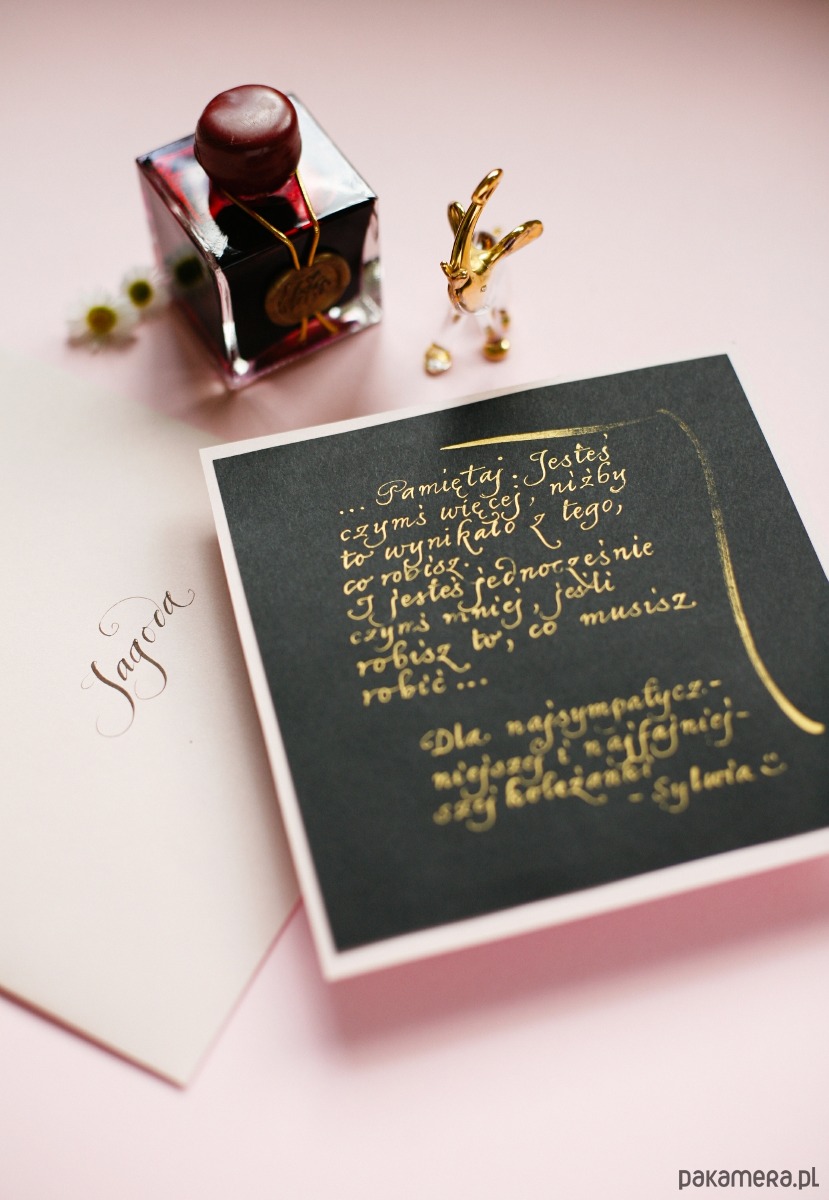 ... Pamiętaj. Jesteś
czymś więcej, niżby
to wynikało z tego,
co robisz.
I jesteś jednocześnie
czymś mniej, jeśli
robisz to, co musisz
robić ...
Dla najsympatycz-
niejszej i najfajniej-
szej koleżanki
- Sylwia
Jagoda
pakamera.pl